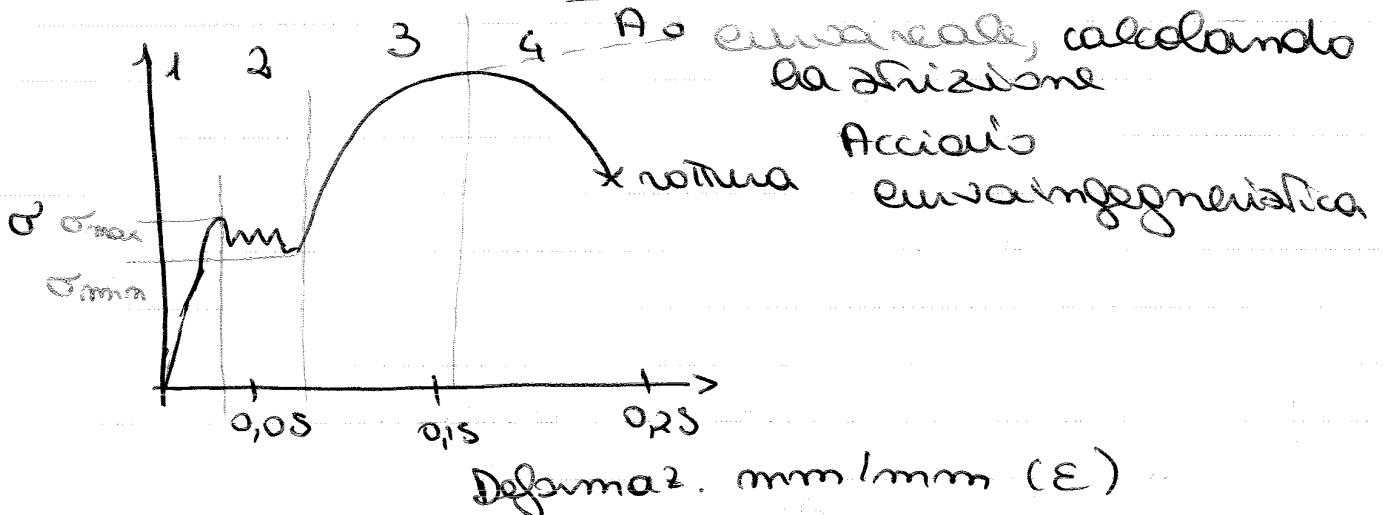 1 2 3 4 A₀ curva reale, calcolando
la strizione
Acciaio
rottura
curva ingegneristica
σ σmax
σmin
0,05 0,15 0,25
Deformaz. mm/mm (ε)